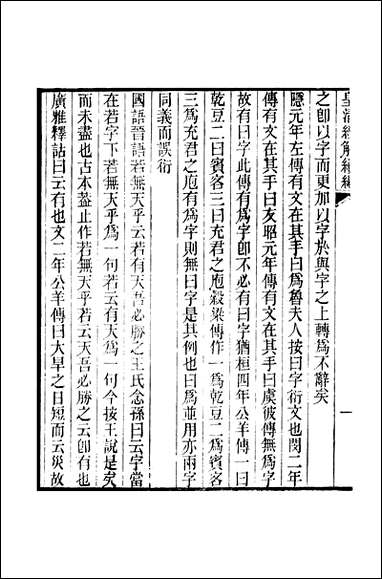 皇清經解續編
之卽以字而更加以字於與字之上轉爲不辭矣
隱元年左傳有文在其手曰爲魯夫人按曰字衍文也閔二年
傳有文在其手曰友昭元年傳有文在其手曰虞彼傳無爲字
故有曰字此傳有爲字卽不必有曰字猶桓四年公羊傳一曰
乾豆二曰賓客三曰充君之庖穀梁傳作一爲乾豆二爲賓客
三爲充君之庖有爲字則無曰字是其例也曰爲並用亦兩字
同義而誤衍
國語晉語若無天乎云若有天吾必勝之王氏念孫曰云字當
在若字下若無天乎爲一句若云有天爲一句今按王說是矣
而未盡也古本葢止作若無天乎若云天吾必勝之云卽有也
廣雅釋詁曰云有也文二年公羊傳曰大旱之日短而云災故